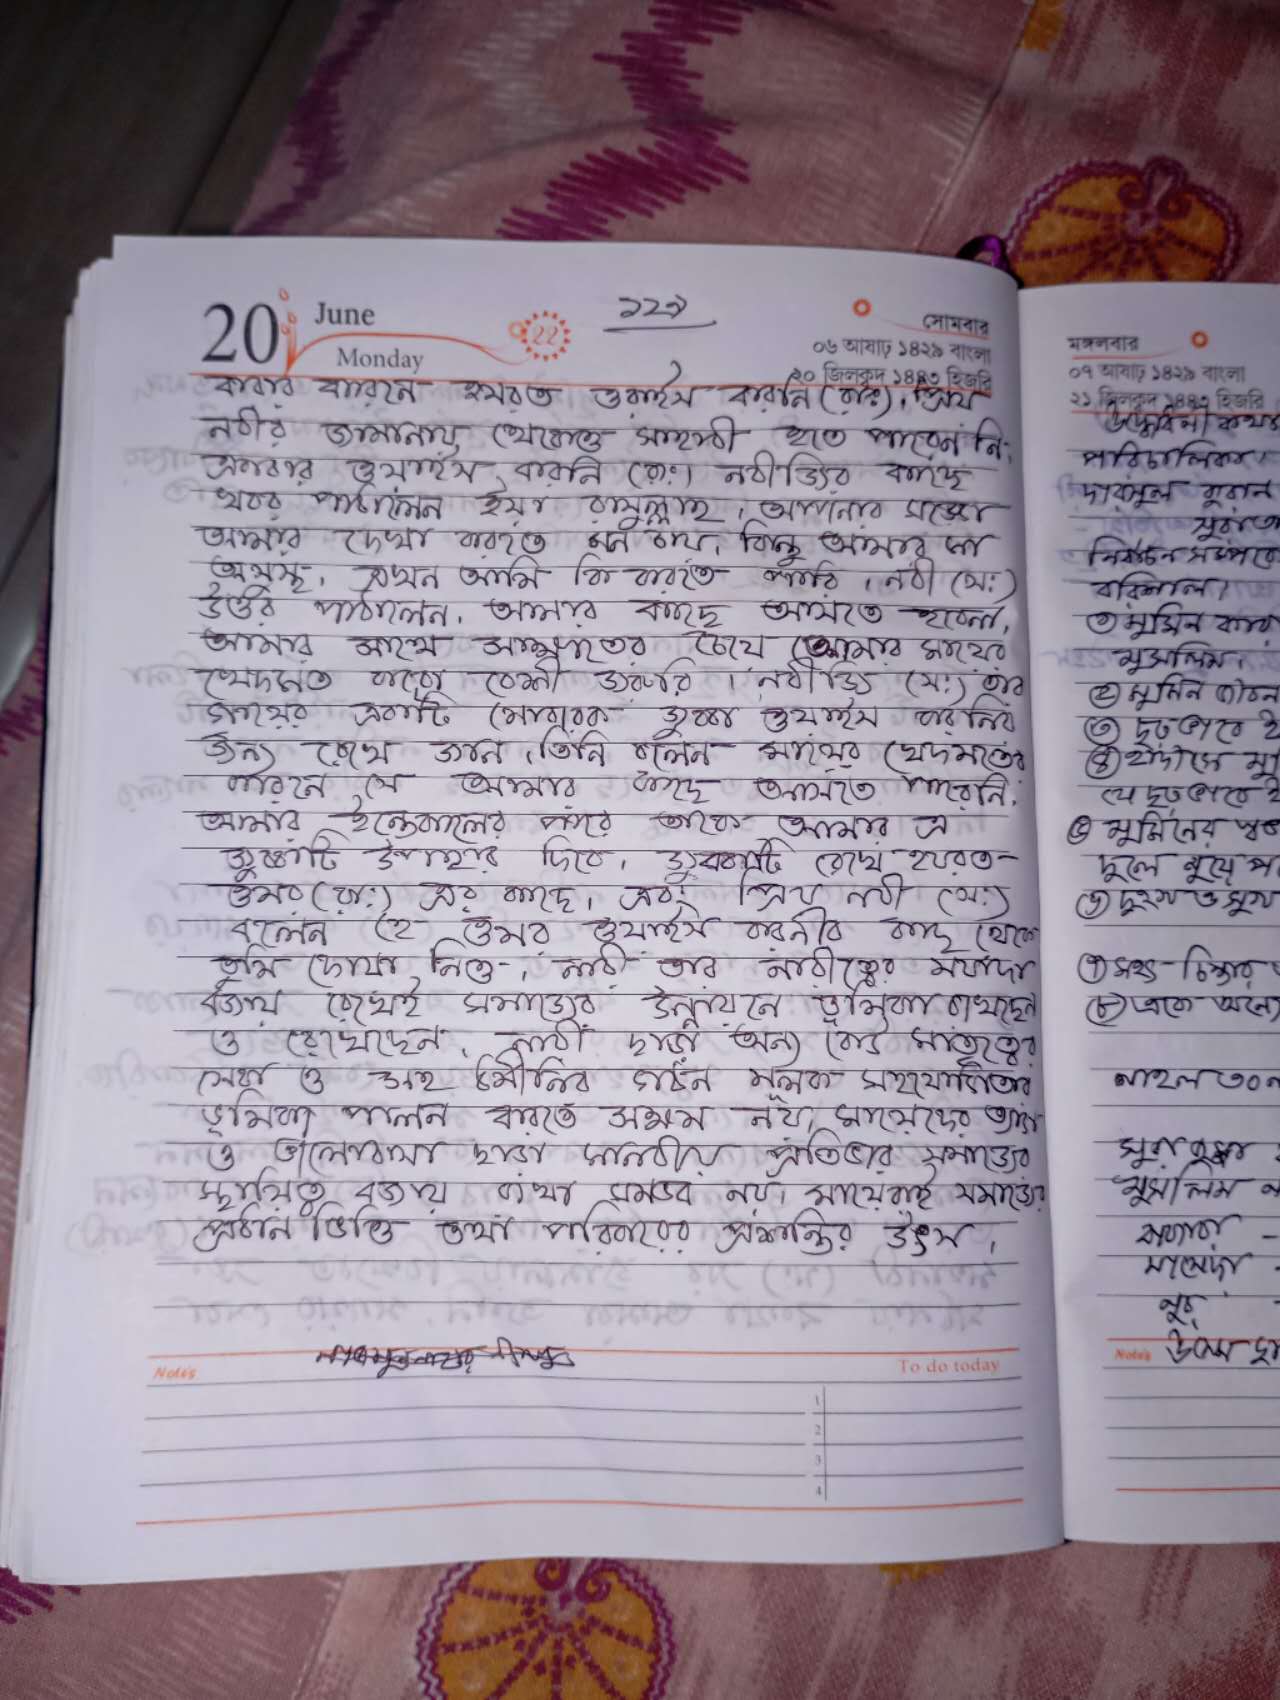 20 June Monday
22
১২৯
সোমবার
০৬ আষাঢ় ১৪২৯ বাংলা
২০ জিলকদ ১৪৪৩ হিজরি
কারনে হযরত ওয়াইস কারনি (রাঃ), প্রিয়
নবীর জামানায় থেকেও সাহাবী হতে পারেন নি,
একবার ওয়াইস কারনি (রাঃ) নবীজির কাছে
খবর পাঠালেন ইয়া রাসুল্লাহ, আপনার সাথে
আমার দেখা করতে মন চায়, কিন্তু আমার মা
অসুস্থ, এখন আমি কি করতে পারি, নবী (সাঃ)
উত্তর পাঠালেন, আমার কাছে আসতে হবেনা,
আমার সাথে সাক্ষাতের চেয়ে তোমার মায়ের
খেদমত করা বেশী জরুরি। নবীজি (সাঃ) তার
গায়ের একটি মোবারক জুব্বা ওয়াইস কারনির
জন্য রেখে জান, তিনি বলেন মায়ের খেদমতের
কারনে সে আমার কাছে আসতে পারেনি,
আমার ইন্তেকালের পরে তাকে আমার এ
জুব্বাটি উপহার দিবে, জুব্বাটি রেখে হযরত
ওমর (রাঃ) এর কাছে, এবং প্রিয় নবী (সাঃ)
বলেন হে ওমর ওয়াইস কারনীর কাছ থেকে
তুমি দোয়া নিও, নারী তার নারীত্বের মর্যাদা
বজায় রেখেই সমাজের উন্নায়নে ভূমিকা রাখছেন
ও রেখেছেন, নারী ছাড়া অন্য কেউ মাতৃত্বের
সেবা ও গঠন মূলক সহযোগিতার
ভূমিকা পালন করতে সক্ষম নয়, মায়েদের ত্যাগ
ও ভালোবাসা ছাড়া মানবীয় প্রতিভার সমাজের
স্থায়িত্ব বজায় রাখা সমভব নয়, মায়েরাই সমাজের
প্রধান ভিত্তি তথা পরিবারের প্রশান্তির উৎস,
Notes
To do today
1
2
3
4
মঙ্গলবার
০৭ আষাঢ় ১৪২৯ বাংলা
২১ জিলকদ ১৪৪৩ হিজরি
পরিচালিকা
দারসুল কুরান
বরিশাল।
① মুমিন
মুসলিম
② মুমিন জীবন
③ দৃঢ়ভাবে
④ হাদীসে
যে দৃঢ়ভাবে
⑤ মুমিনের
⑥ দুঃখ ও সুখ
⑧ একে অন্যে
মুসলিম
নুর
Notes